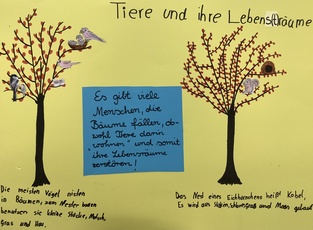 Tiere und ihre Lebens(t)räume
Es gibt viele
Menschen, die
Bäume fällen, ob-
wohl Tiere darin
„wohnen" und somit
ihre Lebensräume
zerstören!
Die meisten Vögel nisten
in Bäumen, zum Nester bauen
benutzen sie kleine Stöcke, Matsch,
Gras und Heu,
Das Nest eines Eichhörnchens heißt Kobel,
Es wird aus und Moos gebaut